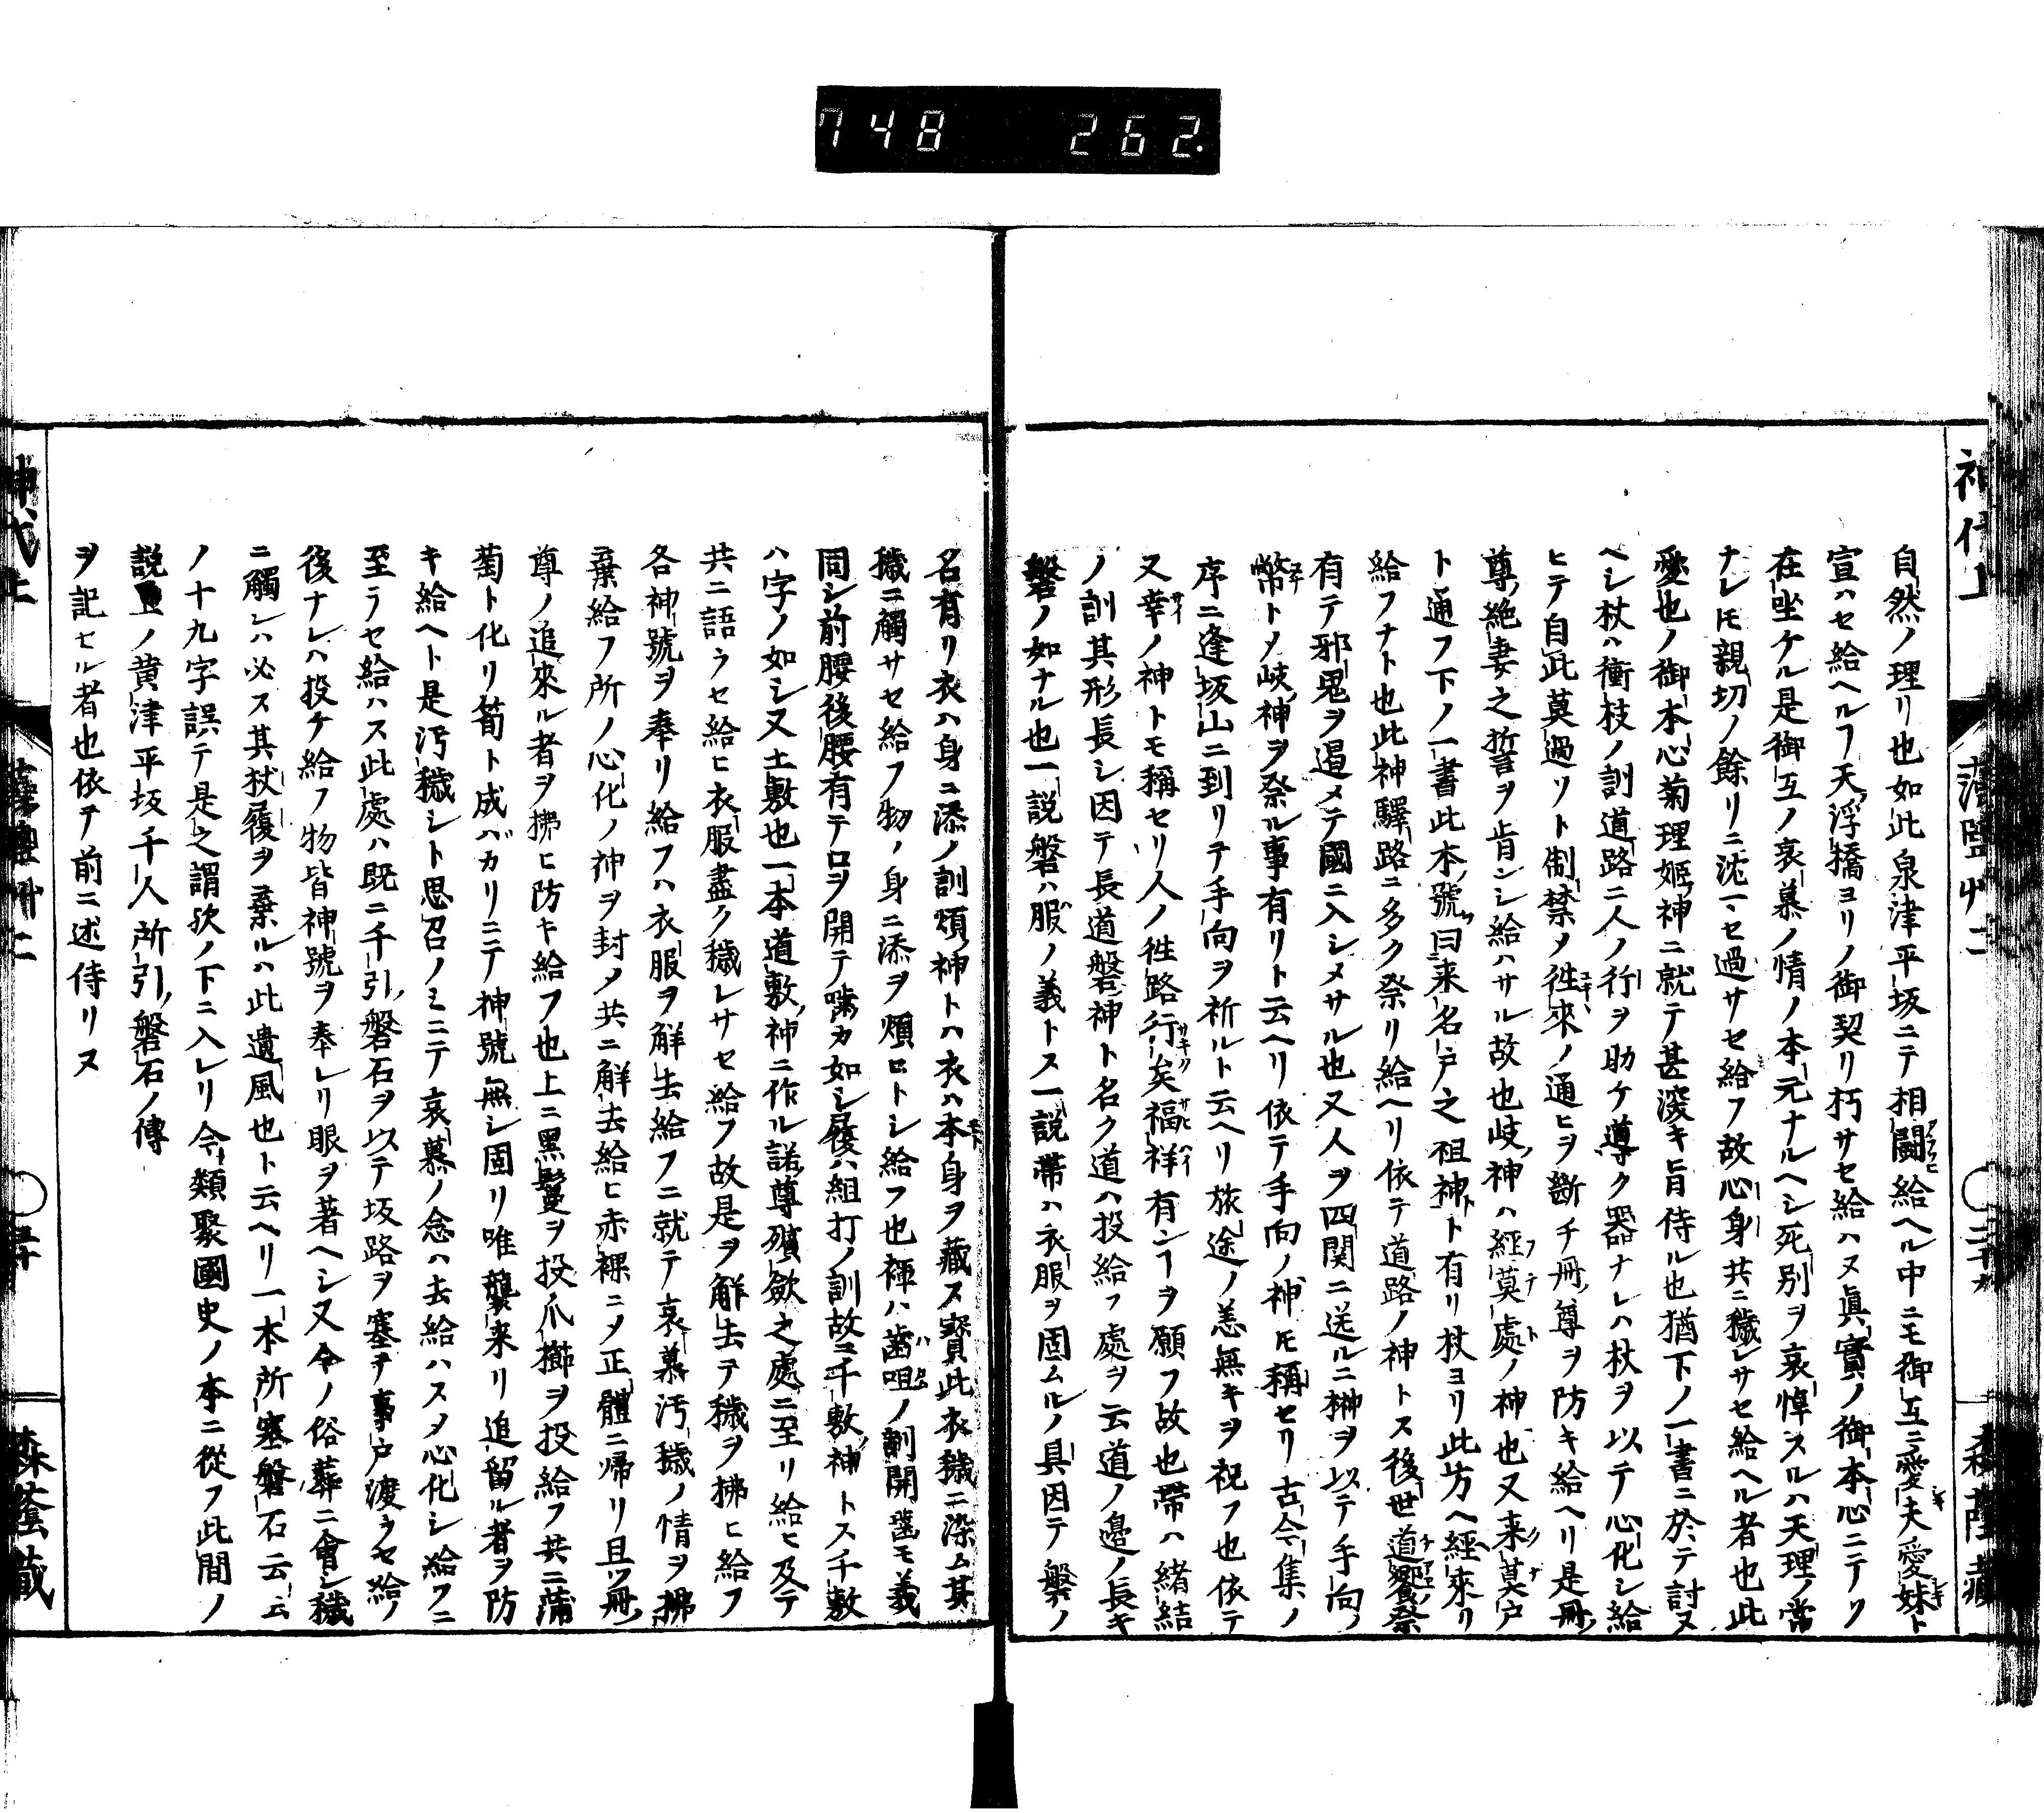 748 262.
神代上 藻鹽艸二 ○二十九 森蔭藏
自然ノ理リ也如此泉津平坂ニテ相鬪給ヘル中ニモ御互ニ愛夫愛妹ト
宣ハセ給ヘルフ天浮橋ヨリノ御契リ朽サセ給ハヌ眞實ノ御本心ニテソ
在坐ケル是御互ノ哀慕ノ情ノ本元ナルヘシ死別ヲ哀悼スルハ天理ノ常
ナレ𪜈親切ノ餘リニ沈マセ過サセ給フ故心身共ニ穢レサセ給ヘル者也此
愛也ノ御本心菊理姬神ニ就テ甚深キ旨侍ル也猶下ノ一書ニ於テ討ヌ
ヘシ杖ハ衝枝ノ訓道路ニ人ノ行ヲ助ケ導ク器ナレハ杖ヲ以テ心化シ給
ヒテ自此莫過ソト制禁メ徃來ノ通ヒヲ斷チ冊尊ヲ防キ給ヘリ是冊
尊絶妻之誓ヲ肯ンシ給ハサル故也岐神ハ經莫處ノ神也又来莫戸
ト通フ下ノ一書此本號曰来名戸之祖神ト有リ杖ヨリ此方ヘ經來リ
給フナト也此神驛路ニ多ク祭リ給ヘリ依テ道路ノ神トス後世道饗祭
有テ邪鬼ヲ遏メテ國ニ入シメサル也又人ヲ四関ニ送ルニ榊ヲ以テ手向ノ
幣トメ岐神ヲ祭ル事有リト云ヘリ依テ手向ノ神𪜈稱セリ古今集ノ
序ニ逢坂山ニ到リテ手向ヲ祈ルト云ヘリ旅途ノ恙無キヲ祝フ也依テ
又幸ノ神トモ稱セリ人ノ徃路行矣福祥有ンヿヲ願フ故也帶ハ緒結
ノ訓其形長シ因テ長道磐神ト名ク道ハ投給フ處ヲ云道ノ邊ノ長キ
磐ノ如ナル也一說磐ハ服ノ義トス一說帶ハ衣服ヲ固ムルノ具因テ磐ノ
名有リ衣ハ身ニ添ノ訓煩神トハ衣ハ本身ヲ藏ス寳此衣穢ニ染ム其
穢ニ觸サセ給フ物ノ身ニ添ヲ煩ヒトシ給フ也褌ハ齒咀ノ訓開囓モ義
同シ前腰後腰有テ口ヲ開テ噛カ如シ履ハ組打ノ訓故ニ千敷神トス千敷
ハ字ノ如シ又土敷也一本道敷神ニ作ル諾尊殯歛之處ニ至リ給ヒ及テ
共ニ語ラセ給ヒ衣服盡ク穢レサセ給フ故是ヲ解去テ穢ヲ拂ヒ給フ
各神號ヲ奉リ給フハ衣服ヲ解去給フニ就テ哀慕汚穢ノ情ヲ拂
棄給フ所ノ心化ノ神ヲ封メ共ニ解去給ヒ赤裸ニメ正體ニ帰リ且ツ冊
尊ノ追來ル者ヲ拂ヒ防キ給フ也上ニ黑鬘ヲ投爪櫛ヲ投給フ共ニ蒲
萄ト化リ筍ト成バカリニテ神號無シ固リ唯襲来リ追留ル者ヲ防
キ給ヘト是汚穢シト思召ノミニテ哀慕ノ念ハ去給ハスメ心化シ給フニ
至ラセ給ハス此處ハ既ニ千引磐石ヲ以テ坂路ヲ塞キ事戸渡ラセ給ノ
後ナレハ投ケ給フ物皆神號ヲ奉レリ眼ヲ著ヘシ又今ノ俗葬ニ會シ穢
ニ觸レハ必ス其杖履ヲ棄ルハ此遺風也ト云ヘリ一本所塞磐石云云
ノ十九字誤テ是之謂歟ノ下ニ入レリ今類聚國史ノ本ニ從フ此間ノ
說上ノ黄津平坂千人所引磐石ノ傳
ヲ記セル者也依テ前ニ述侍リヌ
神代上 藻鹽艸二 ○ 森蔭藏